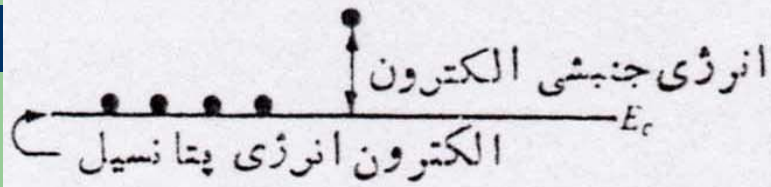 انرژی جنبشی الکترون
E_c
الکترون انرژی پتانسیل